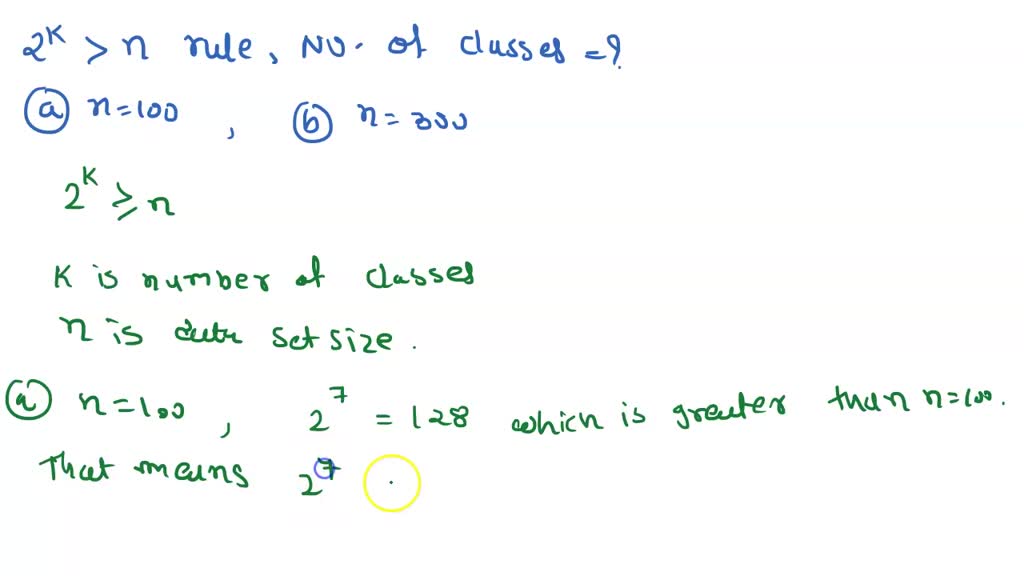 2^K > n rule, No. of classes = ?
(a) n=100 , (b) n=300
2^K ≥ n
K is number of classes
n is data set size.
(a) n=100 , 2^7 = 128 which is greater than n=100.
That means 2^7